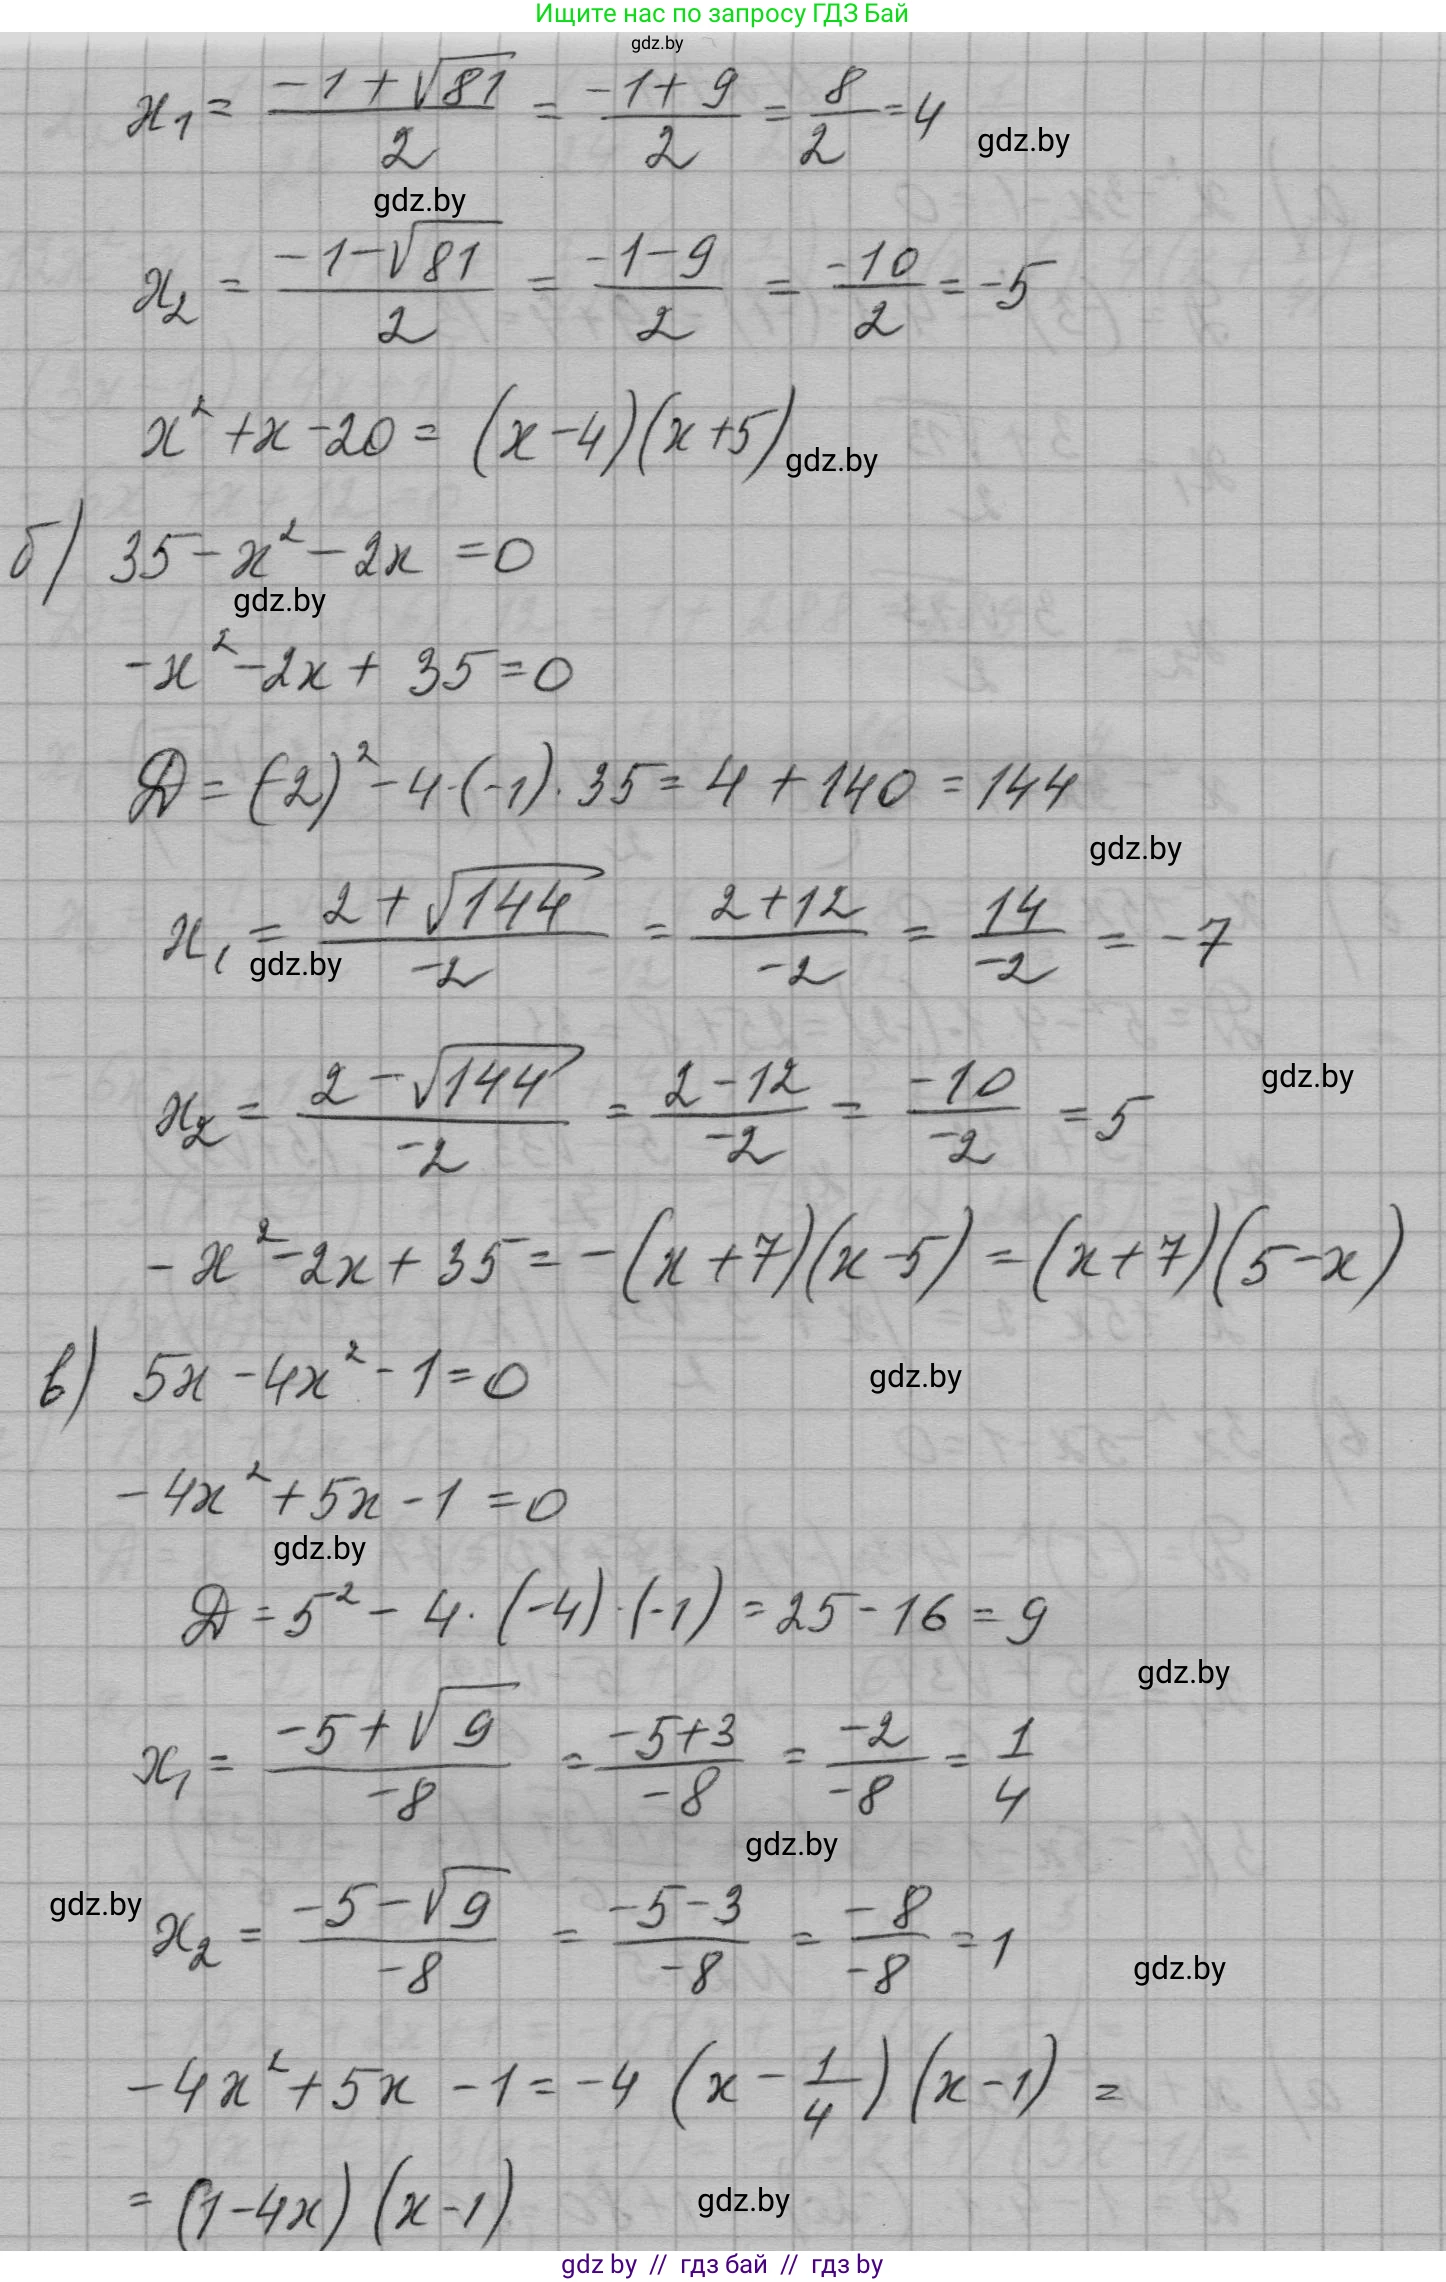 Ищите нас по запросу ГДЗ Бай
gdz.by
x₁ = (-1+√81)/2 = (-1+9)/2 = 8/2 = 4
gdz.by
gdz.by
x₂ = (-1-√81)/2 = (-1-9)/2 = -10/2 = -5
x² + x - 20 = (x-4)(x+5)
gdz.by
б) 35 - x² - 2x = 0
gdz.by
-x² - 2x + 35 = 0
D = (-2)² - 4·(-1)·35 = 4 + 140 = 144
gdz.by
x₁ = (2+√144)/-2 = (2+12)/-2 = 14/-2 = -7
gdz.by
x₂ = (2-√144)/-2 = (2-12)/-2 = -10/-2 = 5
gdz.by
-x² - 2x + 35 = -(x+7)(x-5) = (x+7)(5-x)
в) 5x - 4x² - 1 = 0
gdz.by
-4x² + 5x - 1 = 0
gdz.by
D = 5² - 4·(-4)·(-1) = 25 - 16 = 9
gdz.by
x₁ = (-5+√9)/-8 = (-5+3)/-8 = -2/-8 = 1/4
gdz.by
gdz.by
x₂ = (-5-√9)/-8 = (-5-3)/-8 = -8/-8 = 1
gdz.by
-4x² + 5x - 1 = -4(x - 1/4)(x-1) =
= (1-4x)(x-1)
gdz.by
gdz by // гдз бай // гдз by